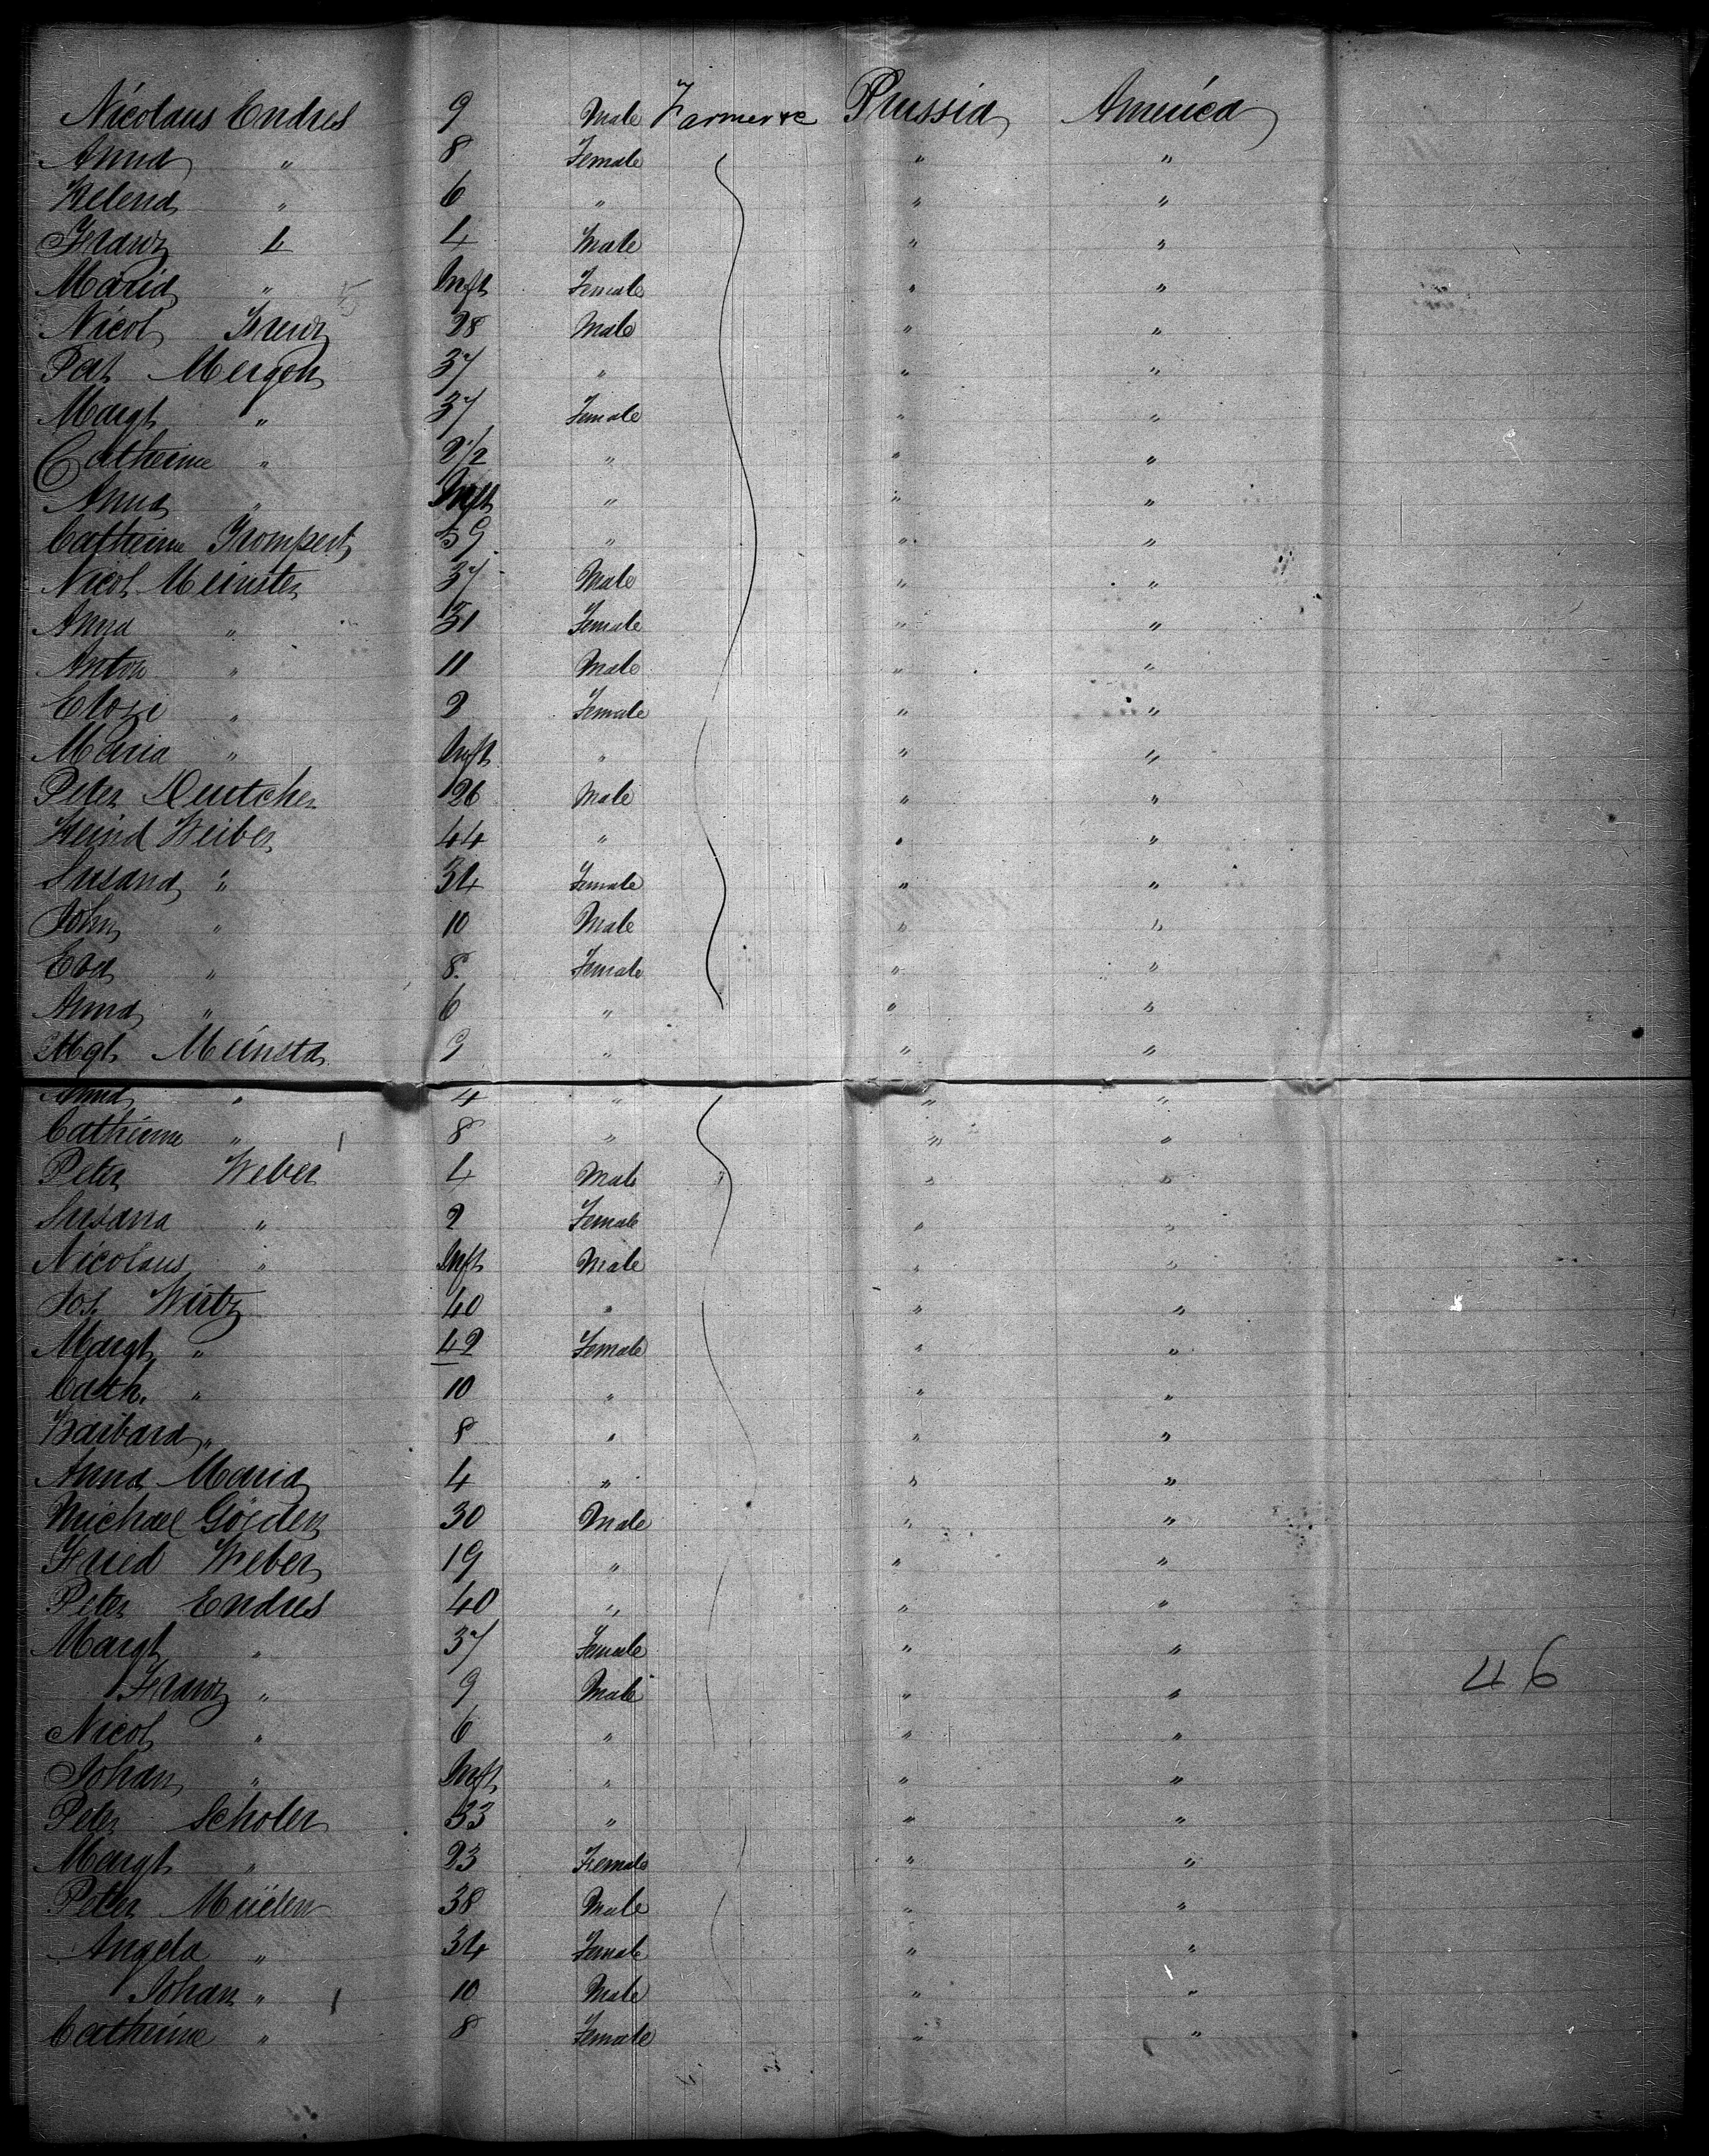 Nicolaus Endres 9 Male Farmer &c Prussia America
Anna " 8 Female " "
Helena " 6 " " "
Franz " 4 Male " "
Maria " Inft Female " "
Nicol 28 Male " "
Pet Mergen 37 " " "
Margt " 37 Female " "
Catherine " 2 1/2 " " "
Anna " Inft " " "
Catherine Trompert 59 " " "
Nicol Meinster 37 Male " "
Anna " 31 Female " "
Anton " 11 Male " "
" 2 Female " "
Maria " Inft " " "
Peter Deutcher 26 Male " "
Weiber 44 " " "
Susana " 34 Female " "
John " 10 Male " "
Eva " 8 Female " "
Anna " 6 " " "
Mgt Meinster 9 " " "
Anna " 4 " " "
Catherine " 8 " " "
Peter Weber 4 Male " "
Susana " 2 Female " "
Nicolaus " Inft Male " "
Jos. Wirtz 40 " " "
Margt " 42 Female " "
Cath. " 10 " " "
Barbara " 8 " " "
Anna Maria 4 " " "
Michael Görden 30 Male " "
Fried Weber 19 " " "
Peter Endres 40 " " "
Margt " 37 Female " "
Franz " 9 Male " "
46
Nicol " 6 " " "
Johan " Inft " " "
Peter Scholer 33 " " "
Margt " 23 Female " "
Peter 38 Male " "
Angela " 34 Female " "
Johan " 10 Male " "
Catherine " 8 Female " "